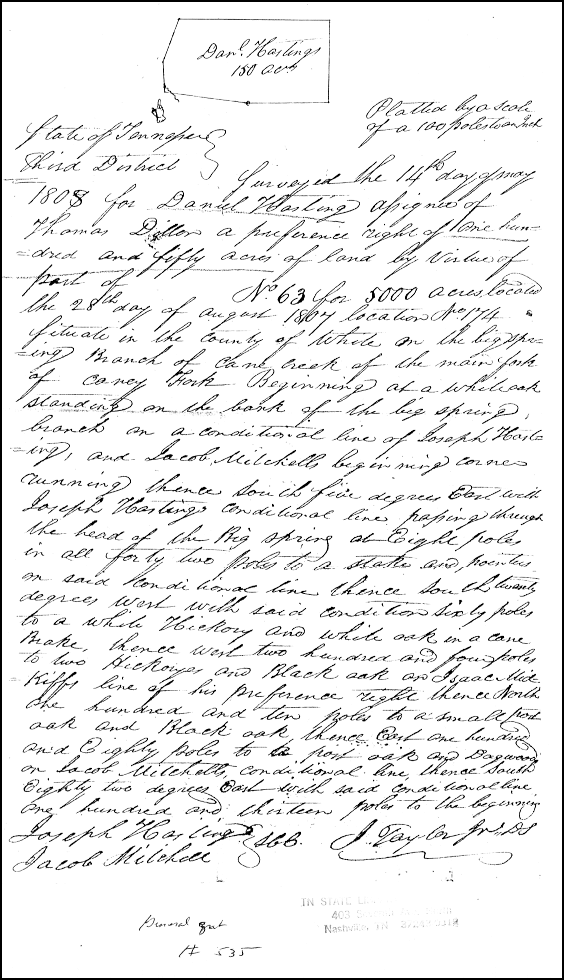 Danl. Hastings
150 acrs
Platted by a scale
of a 100 poles to an Inch
State of Tennessee
Third District
Surveyed the 14th day of may
1808 for Daniel Hasting assignee of
Thomas Dillon a preference right of one hun-
=dred and fifty acres of land by virtue of
part of No 63 for 5000 acres, located
the 28th day of august 1807 location No 174
situate in the county of White on the big spr-
=ing Branch of Cane creek of the main fork
of caney Fork Beginning at a white oak
standing on the bank of the big spring,
branch on a conditional line of Joseph Hast-
=ing, and Jacob Mitchells beginning corner
running thence south five degrees East with
Joseph Hastings conditional line passing through
the head of the Big spring at Eight poles
in all forty two poles to a stake and pointers
on said conditional line thence south twenty
degrees west with said condition sixty poles
to a white Hickory and white oak in a cane
Brake, thence west two hundred and four poles
to two Hickoryes and Black oak on Isaac Mid
Kiffs line of his preference right thence North
one hundred and ten poles to a small post
oak and Black oak, thence East one hundred
and Eighty poles to a post oak and Dogwood
on Jacob Mitchells conditional line, thence South
Eighty two degrees East with said conditional line
one hundred and thirteen poles to the beginning
Joseph Hasting
Jacob Mitchell
J. Taylor Jr. DS
IN STATE
403
Nashville, TN
# 535